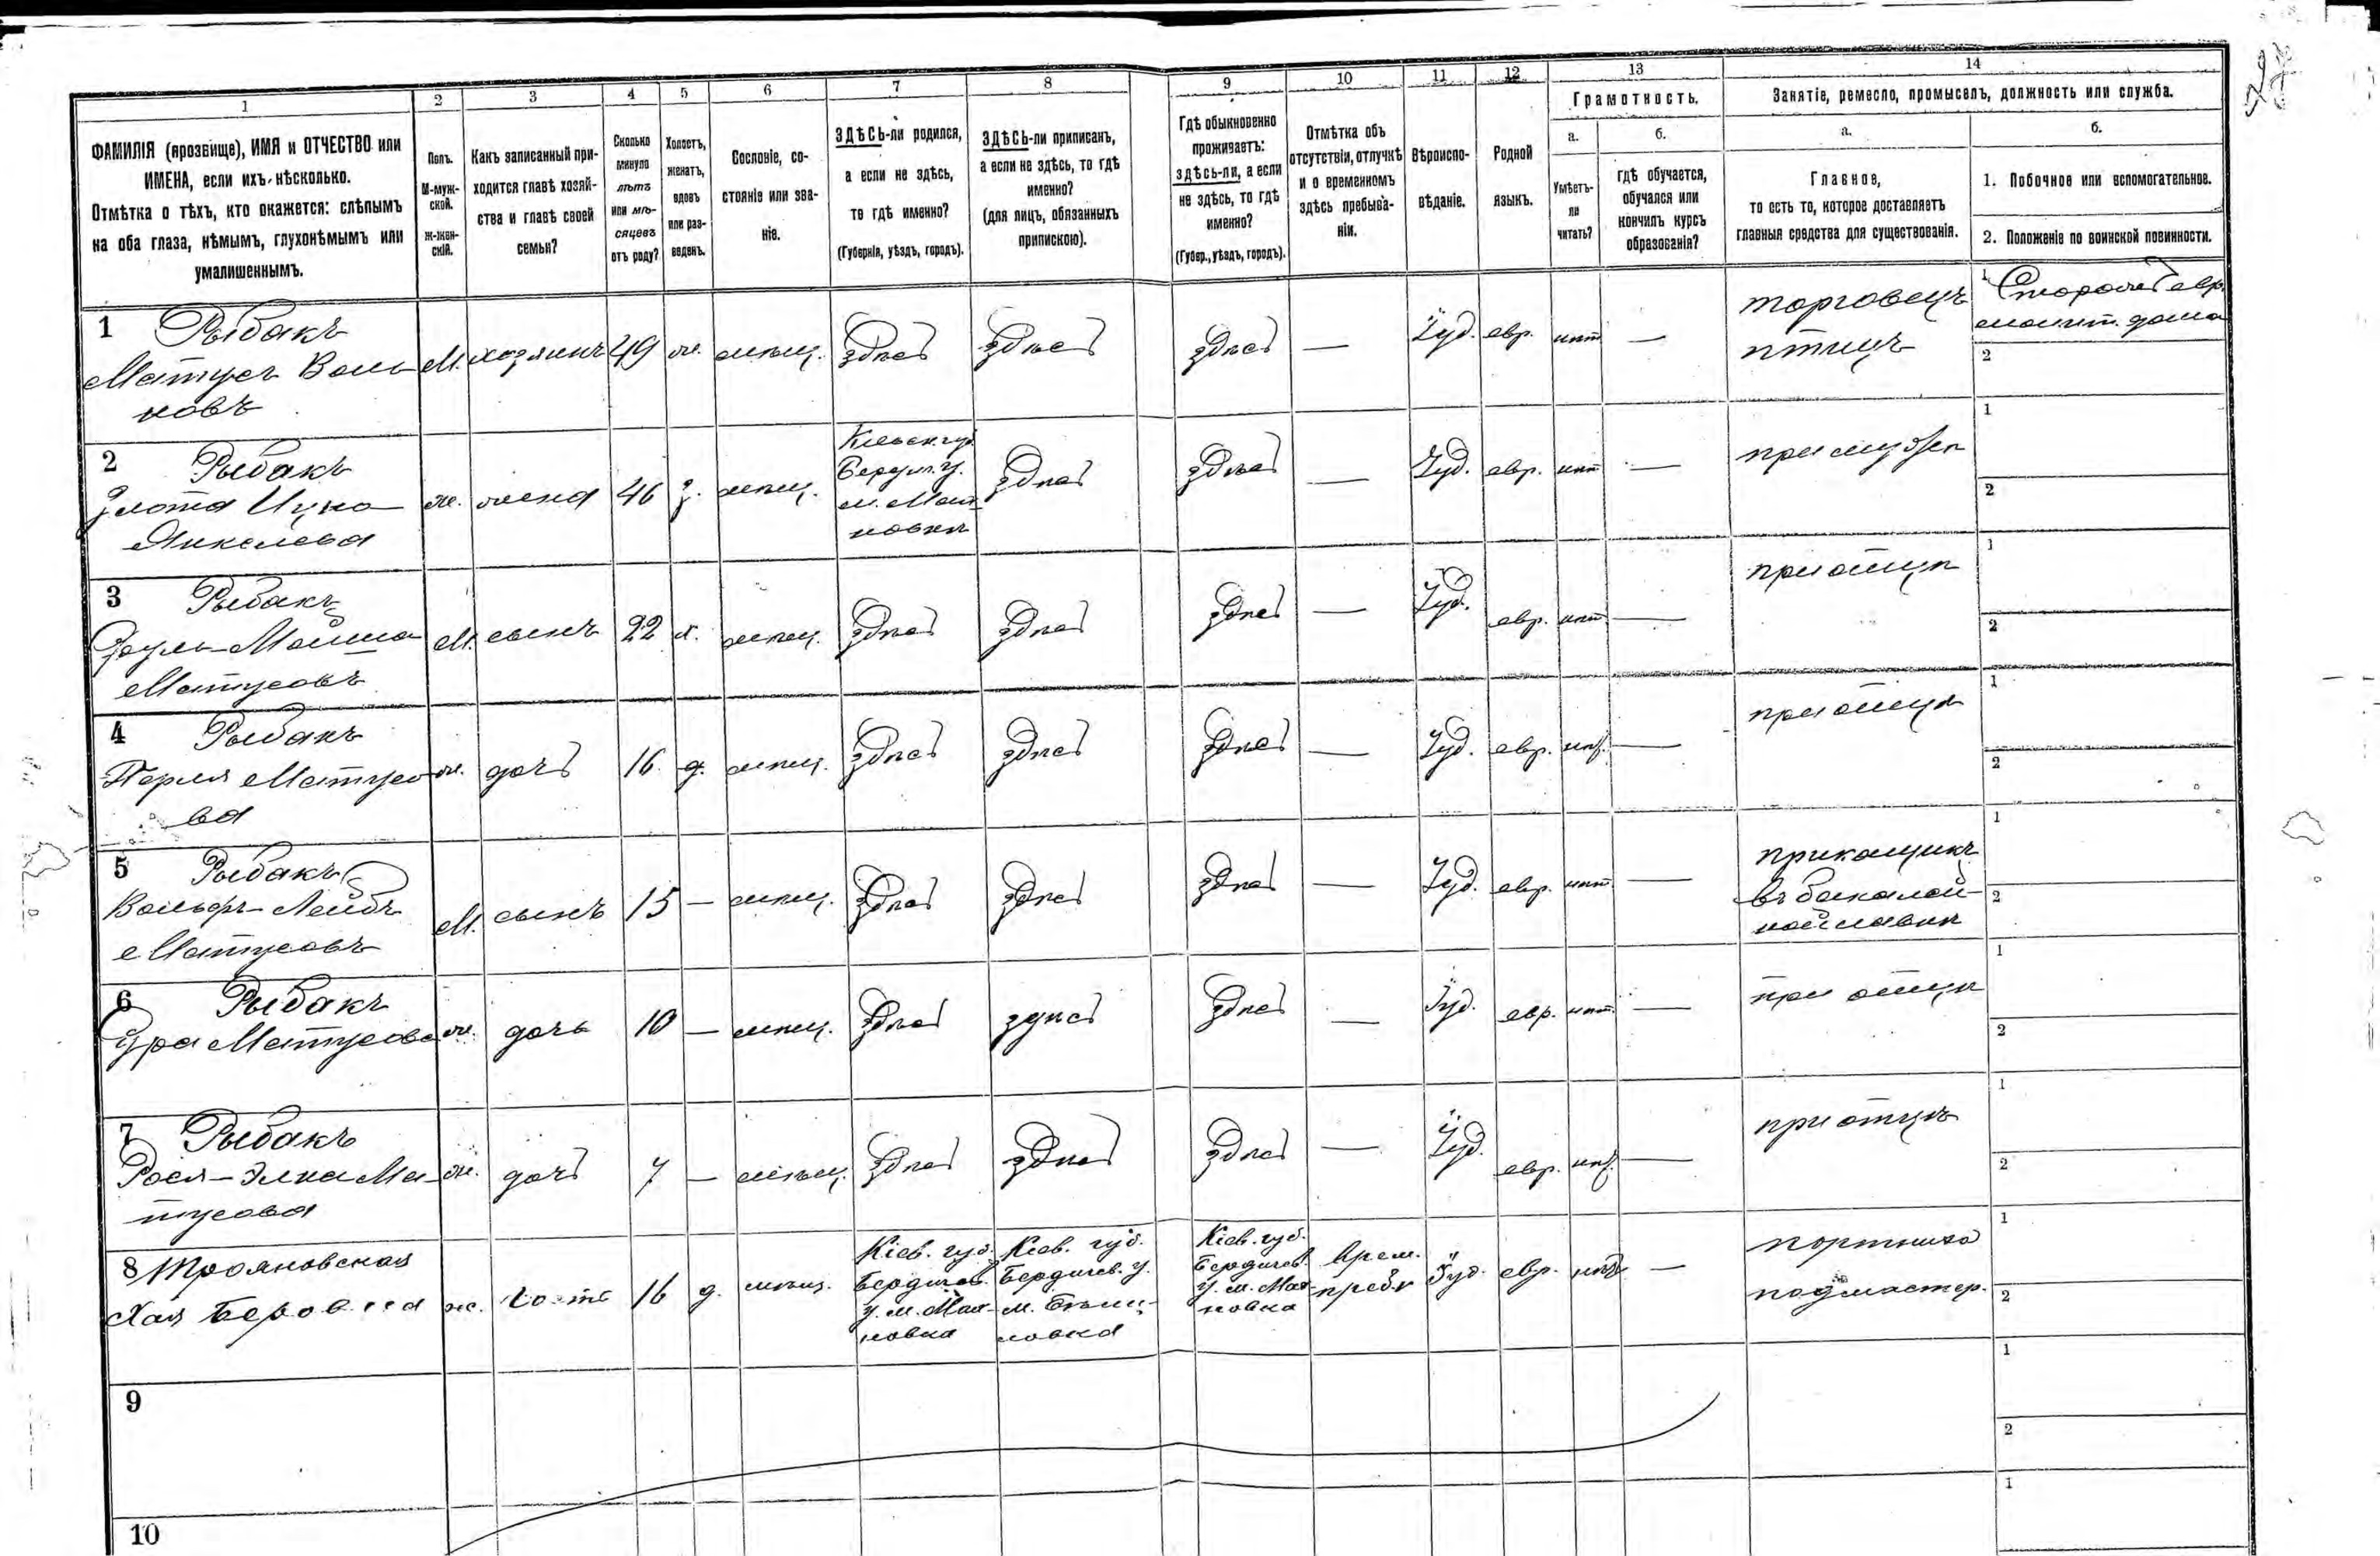 1 2 3 4 5 6 7 8 9 10 11 12 13 14
ФАМИЛІЯ (прозвище), ИМЯ и ОТЧЕСТВО или
ИМЕНА, если ихъ нѣсколько.
Отмѣтка о тѣхъ, кто окажется: слѣпымъ
на оба глаза, нѣмымъ, глухонѣмымъ или
умалишеннымъ.
Полъ.
М-муж-
ской.
Ж-жен-
скій.
Какъ записанный при-
ходится главѣ хозяй-
ства и главѣ своей
семьи?
Сколько
минуло
лѣтъ
или мѣ-
сяцевъ
отъ роду?
Холостъ,
женатъ,
вдовъ
или раз-
веденъ.
Сословіе, со-
стояніе или зва-
ніе.
ЗДѢСЬ-ли родился,
а если не здѣсь,
то гдѣ именно?
(Губернія, уѣздъ, городъ).
ЗДѢСЬ-ли приписанъ,
а если не здѣсь, то гдѣ
именно?
(для лицъ, обязанныхъ
припискою).
Гдѣ обыкновенно
проживаетъ:
здѣсь-ли, а если
не здѣсь, то гдѣ
именно?
(Губер., уѣздъ, городъ).
Отмѣтка объ
отсутствіи, отлучкѣ
и о временномъ
здѣсь пребыва-
ніи.
Вѣроиспо-
вѣданіе.
Родной
языкъ.
Грамотность.
а.
Умѣетъ-
ли
читать?
б.
гдѣ обучается,
обучался или
кончилъ курсъ
образованія?
Занятіе, ремесло, промыселъ, должность или служба.
а.
Главное,
то есть то, которое доставляетъ
главныя средства для существованія.
б.
1. Побочное или вспомогательное.
2. Положеніе по воинской повинности.
1 Рыбакъ
Матусъ Воль
ковъ
М. хозяинъ 49 ж. мѣщ. здѣсь здѣсь здѣсь — Іуд. евр. нѣт —
торговецъ
птицъ
1 Сторожъ евр.
молит. дома
2
2 Рыбакъ
Злота Ицко
Янкелева
ж. жена 46 з. мѣщ.
Кіевск. губ.
Бердич. у.
м. Мах
новки
здѣсь здѣсь — Іуд. евр. нѣт —
при мужѣ
1
2
3 Рыбакъ
Сруль-Мошко
Матусовъ
М. сынъ 22 х. мѣщ. здѣсь здѣсь здѣсь — Іуд. евр. нѣт —
при отцѣ
1
2
4 Рыбакъ
Перля Матусо
ва
ж. дочь 16 д. мѣщ. здѣсь здѣсь здѣсь — Іуд. евр. нѣт —
при отцѣ
1
2
5 Рыбакъ
Вольфъ-Лейбъ
Матусовъ
М. сынъ 15 — мѣщ. здѣсь здѣсь здѣсь — Іуд. евр. нѣт —
прикащикъ
въ бакалей-
ной лавкѣ
1
2
6 Рыбакъ
Сура Матусова
ж. дочь 10 — мѣщ. здѣсь здѣсь здѣсь — Іуд. евр. нѣт —
при отцѣ
1
2
7 Рыбакъ
Рося-Элка Ма-
тусова
ж. дочь 7 — мѣщ. здѣсь здѣсь здѣсь — Іуд. евр. нѣт —
при отцѣ
1
2
8 Трояновская
Хая Беровна
ж. гостья 16 д. мѣщ.
Кіев. губ.
Бердичев.
у. м. Мах-
новка
Кіев. губ.
Бердичев. у.
м. Бѣлиловка
Кіев. губ.
Бердичев.
у. м. Мах-
новка
Врем.
преб.
Іуд. евр. —
портниха
подмастер.
1
2
9
1
2
10
1